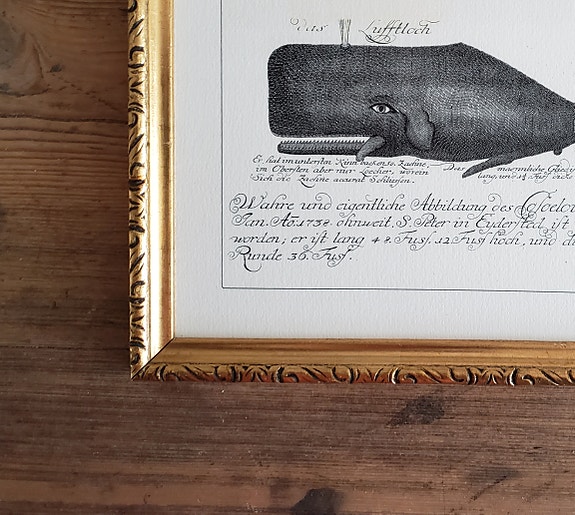 das Lufftloch
Er hat im untersten Kinnbacken 52. Zaehne,
im Obersten aber nur Loecher, worein
Sich die Zaehne accurat Schliessen.
Das maennliche Glied
lang, und 1½ Fuss
Wahre und eigentliche Abbildung des
Jan. Ao: 1738. ohnweit S. Peter in Eydersted, ist
worden; er ist lang 48. Fuss. 12 Fuss hoch, und
Runde 36. Fuss.